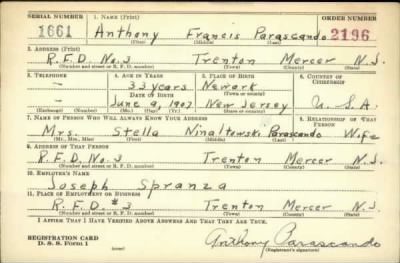 SERIAL NUMBER 1. NAME (Print) ORDER NUMBER
1661 Anthony Francis Parascando 2196
(First) (Middle) (Last)
2. ADDRESS (Print)
R.F.D. No. 3 Trenton Mercer N.J.
(Number and street or R. F. D. number) (Town) (County) (State)
3. TELEPHONE 4. AGE IN YEARS 5. PLACE OF BIRTH 6. COUNTRY OF CITIZENSHIP
— 33 years Newark
DATE OF BIRTH (Town or county)
— June 9, 1907 New Jersey U.S.A.
(Exchange) (Number) (Mo.) (Day) (Yr.) (State or country)
7. NAME OF PERSON WHO WILL ALWAYS KNOW YOUR ADDRESS 8. RELATIONSHIP OF THAT PERSON
Mrs. Stella Parascando Wife
(Mr., Mrs., Miss) (First) (Middle) (Last)
9. ADDRESS OF THAT PERSON
R.F.D. No. 3 Trenton Mercer N.J.
(Number and street or R. F. D. number) (Town) (County) (State)
10. EMPLOYER'S NAME
Joseph Spranza
11. PLACE OF EMPLOYMENT OR BUSINESS
R.F.D. #3 Trenton Mercer N.J.
(Number and street or R. F. D. number) (Town) (County) (State)
I AFFIRM THAT I HAVE VERIFIED ABOVE ANSWERS AND THAT THEY ARE TRUE.
REGISTRATION CARD
D. S. S. Form 1 (over) Anthony Parascando
(Registrant's signature)